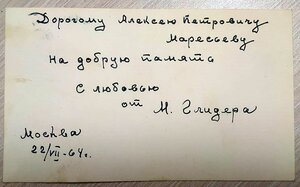 Дорогому Алексею Петровичу
Маресьеву
на добрую память
с любовью
от М. Глидера
Москва
22/VII-64г.